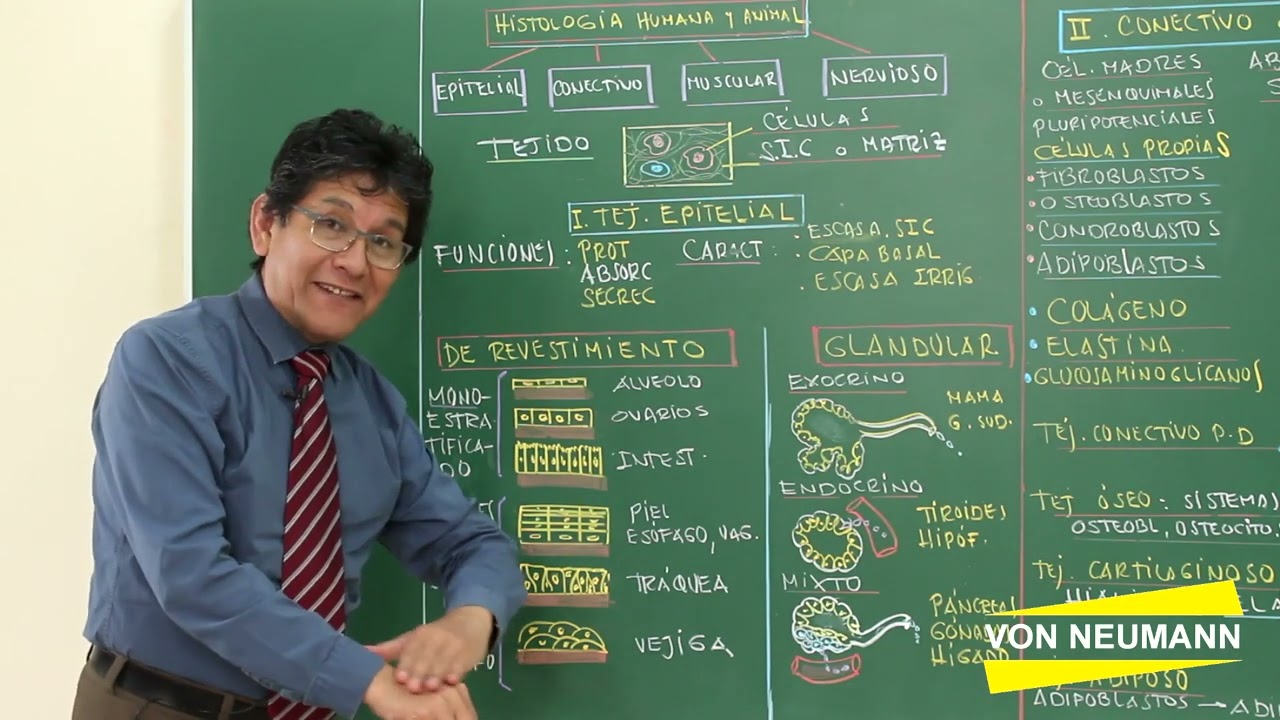 HISTOLOGÍA HUMANA Y ANIMAL
EPITELIAL
CONECTIVO
MUSCULAR
NERVIOSO
TEJIDO
CÉLULAS
S.I.C o MATRIZ
I. TEJ. EPITELIAL
FUNCIONES: PROT
ABSORC
SECREC
CARACT: . ESCASA. SIC
. CAPA BASAL
. ESCASA IRRIG
DE REVESTIMIENTO
MONO-
ESTRA
TIFICA-
DO
ALVEOLO
OVARIOS
INTEST.
PIEL
ESOFAGO, VAG.
TRÁQUEA
VEJIGA
GLANDULAR
EXOCRINO
MAMA
G. SUD.
ENDOCRINO
TIROIDES
HIPÓF.
MIXTO
PÁNCREAS
GÓNADA
HÍGADO
II. CONECTIVO
CÉL. MADRES
o MESENQUIMALES
PLURIPOTENCIALES
CÉLULAS PROPIAS
• FIBROBLASTOS
• OSTEOBLASTOS
• CONDROBLASTOS
• ADIPOBLASTOS
• COLÁGENO
• ELASTINA
• GLUCOSAMINOGLICANOS
TEJ. CONECTIVO P.D
TEJ ÓSEO: SISTEMAS
OSTEOBL, OSTEOCITO.
TEJ. CARTILAGINOSO
ADIPOSO
ADIPOBLASTOS → ADI
VON NEUMANN